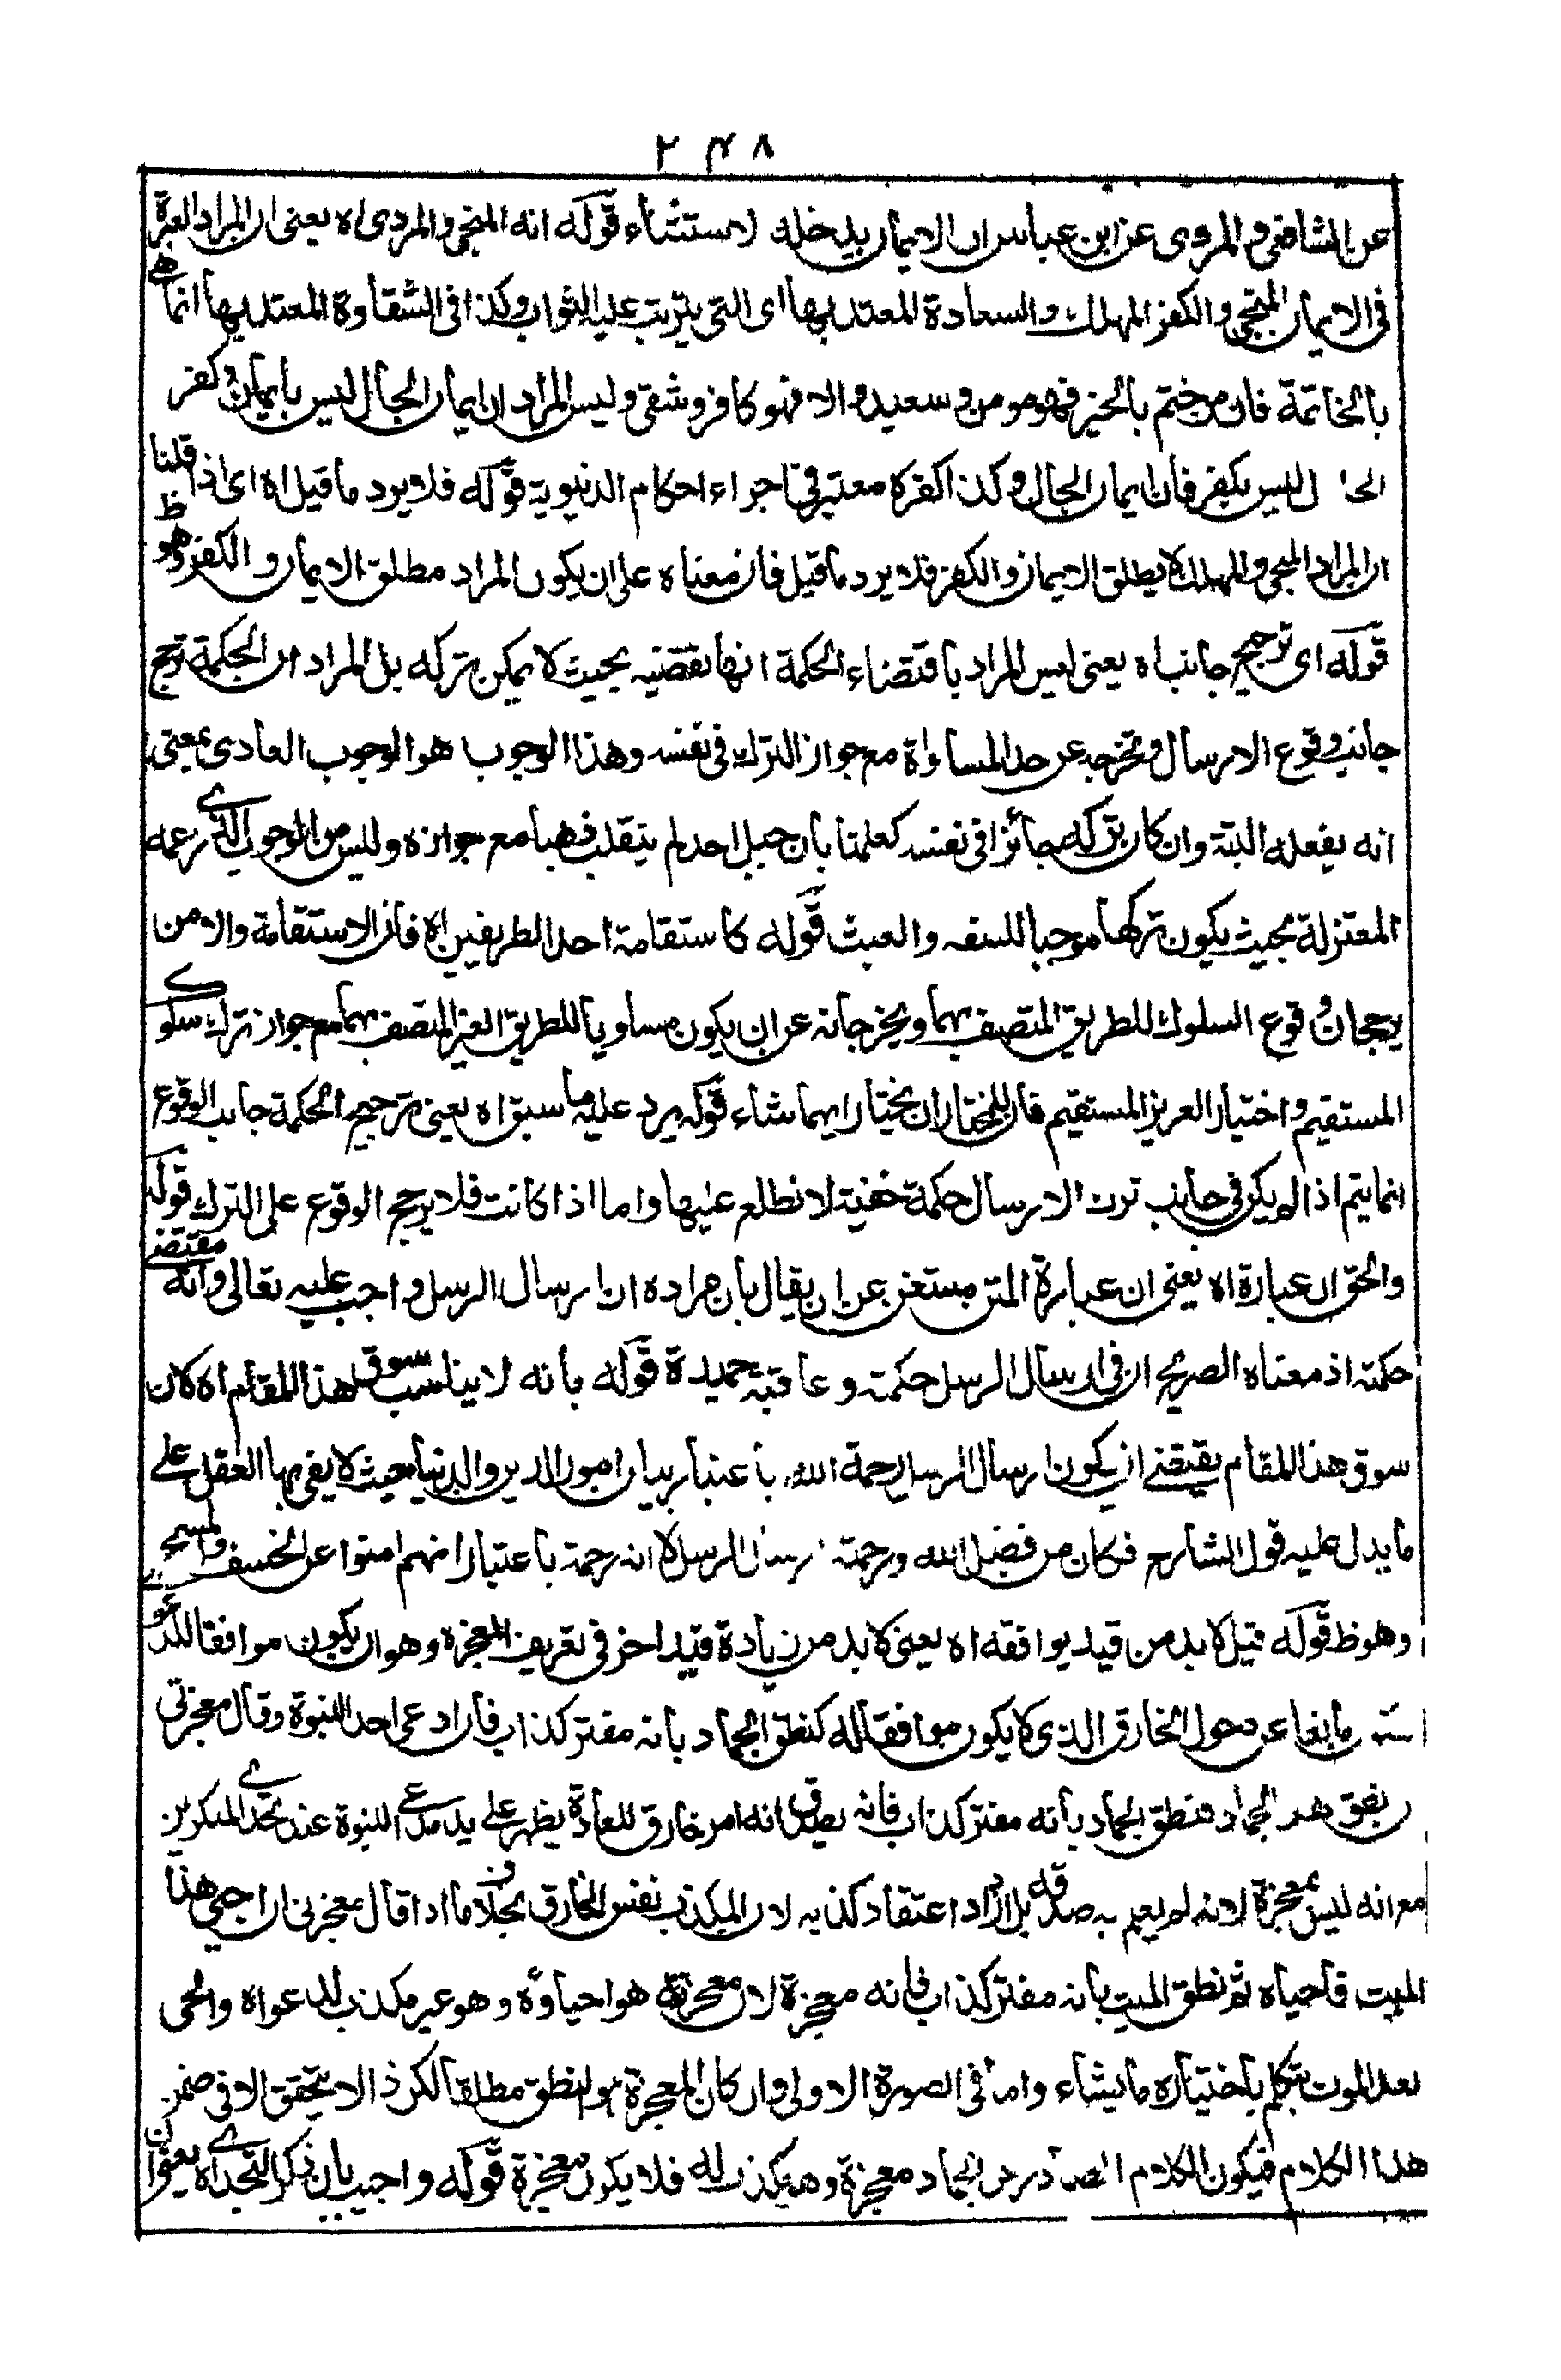 ۲۴۸
عن الشافعي والمروي عن ابن عباس ان الايمان يدخله لاستثناء قوله انه المنجي والمردي اه يعني ان المراد العبرة
في الايمان المنجي والكفر المهلك والسعادة المعتد بها اي التي يترتب عليه الثواب وكذا في الشقاوة المعتد بها انما هي
بالخاتمة فان من ختم بالخير فهو مومن وسعيد والا فهو كافر وشقي وليس المراد ان ايمان الحال ليس بايمان وكفر
الحال ليس بكفر فان ايمان الحال وكذا كفره معتبر في اجراء احكام الدنيوية قوله فلا يرد ما قيل اه اي اذا قلنا
ان المراد المنجي والمهلك لا يطلق الايمان والكفر فلا يرد ما قيل فان معناه على ان يكون المراد مطلق الايمان والكفر وهو ظ
قوله اي ترجيح جانب اه يعني ليس المراد باقتضاء الحكمة انها تقتضيه بحيث لا يمكن تركه بل المراد ان الحكمة ترجح
جانب وقوع الارسال وتخرجه عن حد المساواة مع جواز الترك في نفسه وهذا الوجوب هو الوجوب العادي بمعنى
انه يفعله البتة وان كان تركه جائزا في نفسه كعلمنا بان جبل احد لم ينقلب ذهبا مع جوازه وليس من الوجوب الذي زعمه
المعتزلة بحيث يكون تركها موجبا للسفه والعبث قوله كاستقامة احد الطريقين اه فان الاستقامة والامن
يرجحان وقوع السلوك للطريق المتصف بهما ويخرجانه عن ان يكون مساويا للطريق الغير المتصف بهما مع جواز ترك سلوك
المستقيم واختيار الغير المستقيم فان للمختار ان يختار ايهما شاء قوله يرد عليه ما سبق اه يعني ترجيح الحكمة جانب الوقوع
انما يتم اذا لم يكن في جانب ترك الارسال حكمة خفية لا نطلع عليها واما اذا كانت فلا يرجح الوقوع على الترك قوله
والحق ان عبارة اه يعني ان عبارة المتن مستغن عن ان يقال بان مراده ان ارسال الرسل واجب عليه تعالى وانه مقتضى
حكمته اذ معناه الصريح ان في ارسال الرسل حكمة وعاقبة حميدة قوله بانه لا يناسب سوق هذا المقام اه كان
سوق هذا المقام يقتضي ان يكون ارسال الرسل رحمة الله باعتبار بيان امور الدين والدنيا بحيث لا يفي بها العقل على
ما يدل عليه قول الشارع فكان من فضل الله ورحمته ارسال الرسل لا انه رحمة باعتبار انهم امنوا عن الخسف والمسخ
وهو ظ قوله قيل لا بد من قيد يوافقه اه يعني لا بد من زيادة قيد اخر في تعريف المعجزة وهو ان يكون موافقا للدعوى
ما نعا عن دخول الخارق الذي لا يكون موافقا له كنطق الجماد بانه مفتر كذاب فان ادعى احد النبوة وقال معجزتي
نطق هذا الجماد فنطق الجماد بانه مفتر كذاب فانه يصدق انه امر خارق للعادة يظهر على يد مدعي النبوة عند تحدي المنكرين
مع انه ليس بمعجزة لانه لم يعلم به صدقه بل ازداد اعتقاد كذبه لان المكذب نفس الخارق بخلاف ما اذا قال معجزتي ان احيي هذا
الميت فاحياه ثم نطق الميت بانه مفتر كذاب فانه معجزة لان معجزته هو احياؤه وهو غير مكذب لدعواه والحي
بعد الموت يتكلم باختياره ما يشاء واما في الصورة الاولى وان كان المعجزة هو النطق مطلقا لكن ذا لا يتحقق الا في ضمن
هذا الكلام فيكون الكلام الصادر من الجماد معجزة وهو مكذب له فلا يكون معجزة قوله واجيب بان ذكر التحدي اه يعني ان